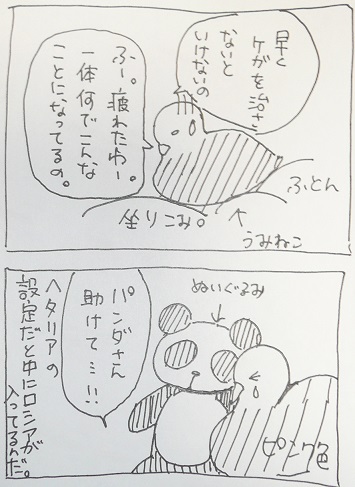 早く
ケガを治さ
ないと
いけないの
ふー。疲れたわー。
一体何でこんな
ことになってるの。
ふとん
坐りこみ。
うみねこ
ぬいぐるみ
パンダさん
助けて…!!
ピンク色
ヘタリアの
設定だと中にロシアが
入ってるんだ。